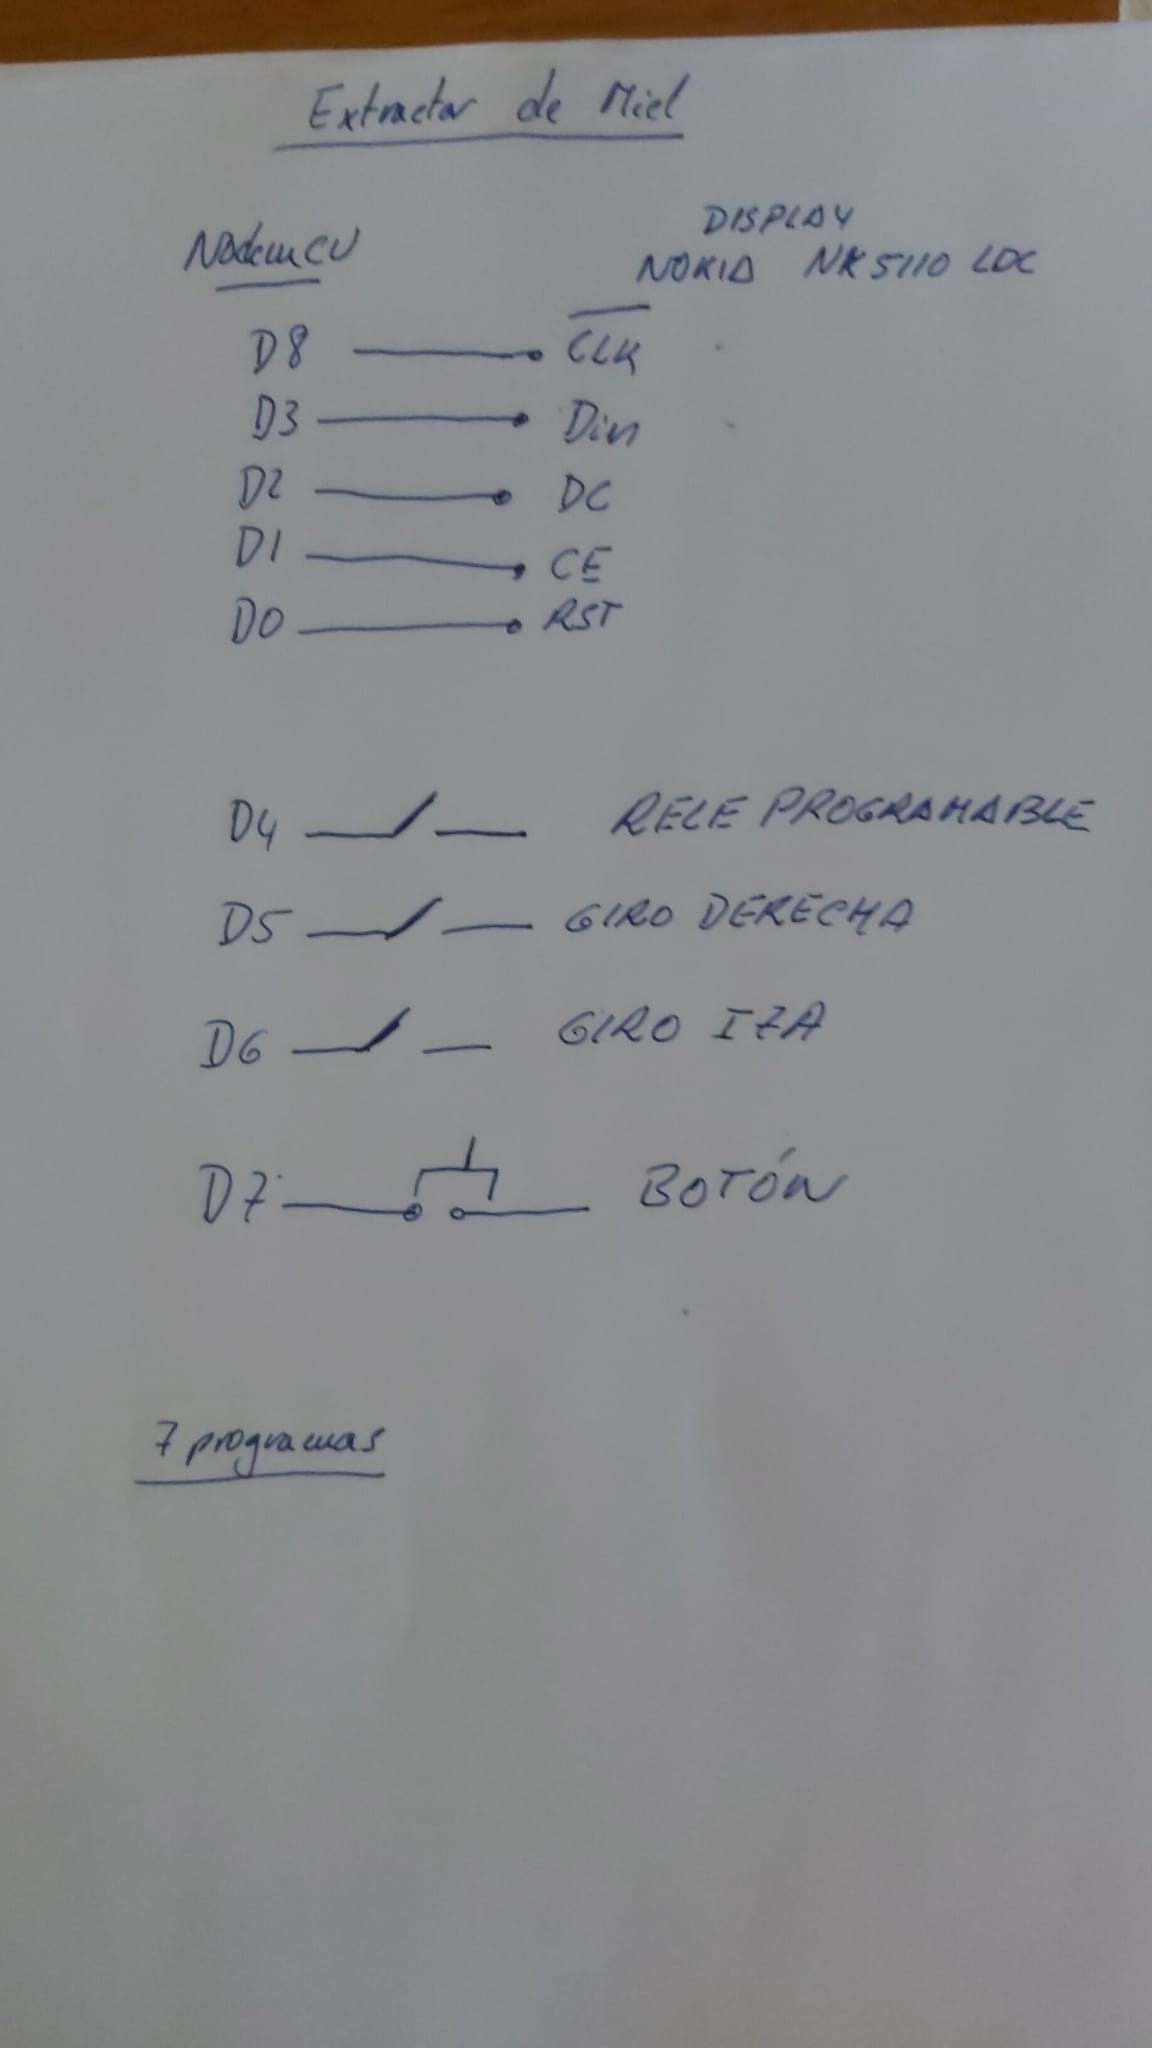 Extractor de Miel
NodemCU
DISPLAY
NOKIA NK5110 LDC
D8 CLK
D3 Din
D2 DC
D1 CE
D0 RST
D4 RELE PROGRAMABLE
D5 GIRO DERECHA
D6 GIRO IZA
D7 BOTÓN
7 programas